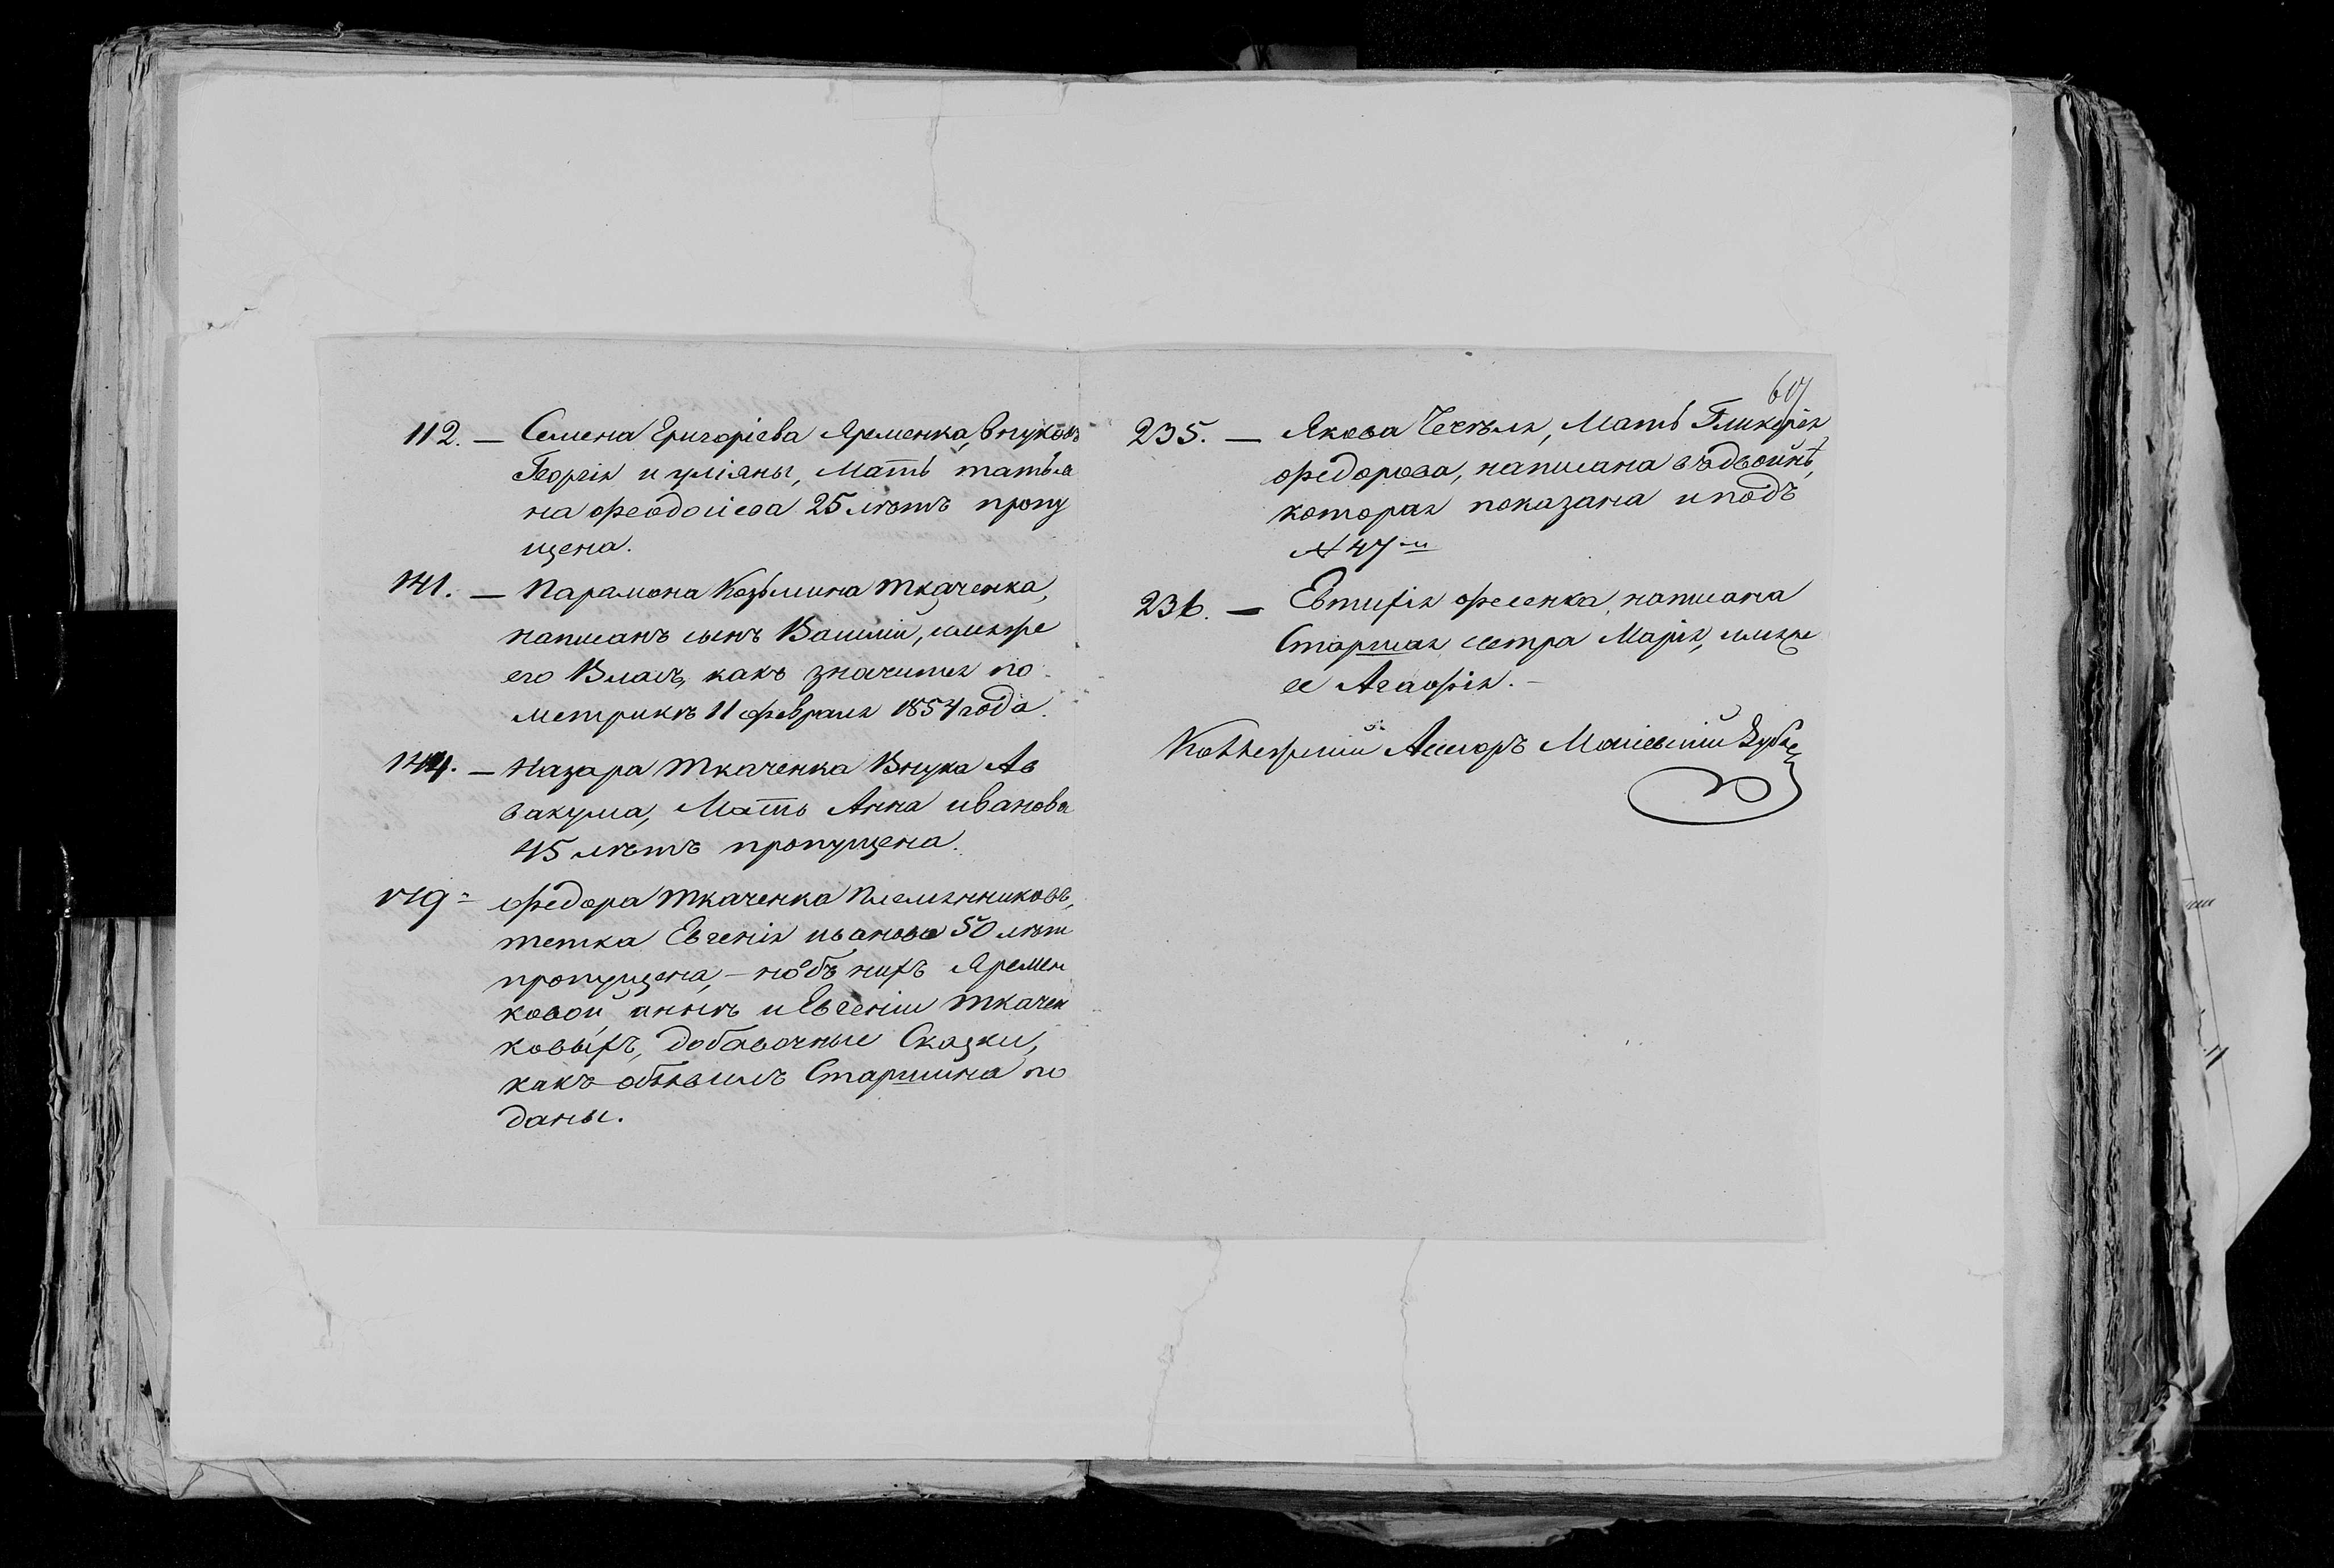 112. — Семена Григоріева Яременка, внуковъ
Георгія и уліяны, Мать татья
на Феодосіева 25 лѣтъ пропу
щена.
141. — Парамона Козьмина Ткаченка,
написанъ сынъ Василій, имя же
его Власъ, какъ значится по
метрикѣ 11 февраля 1854 года.
144. — Назара Ткаченка Внука Ав
вакума, Мать Анна иванова
45 лѣтъ пропущена.
149 = Федора Ткаченка Племянниковъ,
тетка Евгенія иванова 50 лѣтъ
пропущена, — но объ нихъ Яремен
ковой, аннѣ и Евгеніи Ткачен
ковыхъ, добавочные Сказки,
какъ объявилъ Старшина по
даны.
60
235. — Якова Мать Гликерія
Федорова, написана въ двойнѣ,
которая показана и подъ
№ 47-м
236. — Евтихія Фесенка, написана
Старшая сестра Марія, имя же
ее Агафія. —
Коллежскій Ассесоръ